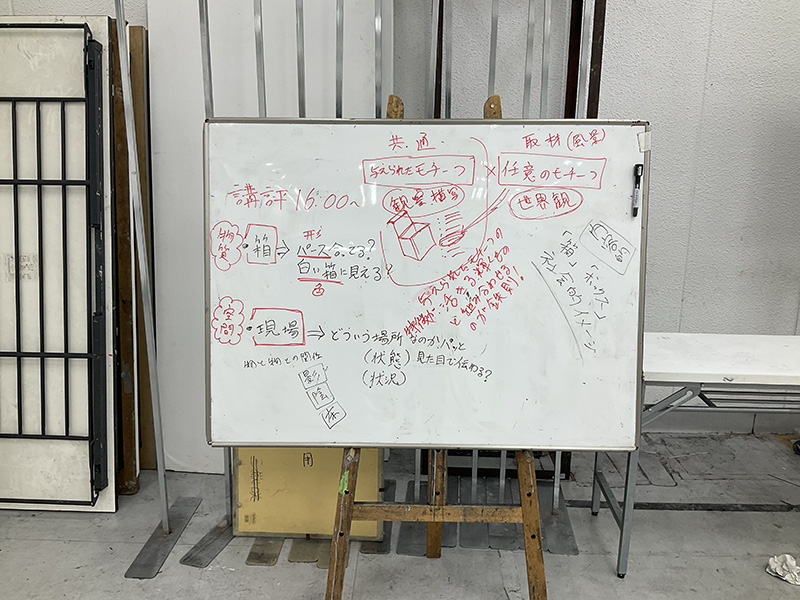 共通
取材(風景)
与えられたモチーフ × 任意のモチーフ
観察描写
世界観
講評 16:00~
物質
・箱 ⇒ パース合ってる?
形
白い箱に見える?
色
与えられたモチーフの
特徴が活きる様なもの
と組み合わせる
のが鉄則!
「ボックス」
「箱」
空間
・現場 ⇒ どういう場所なのかパッと
(状態) 見た目で伝わる?
(状況)
物と物との関係
影
陰
床
用